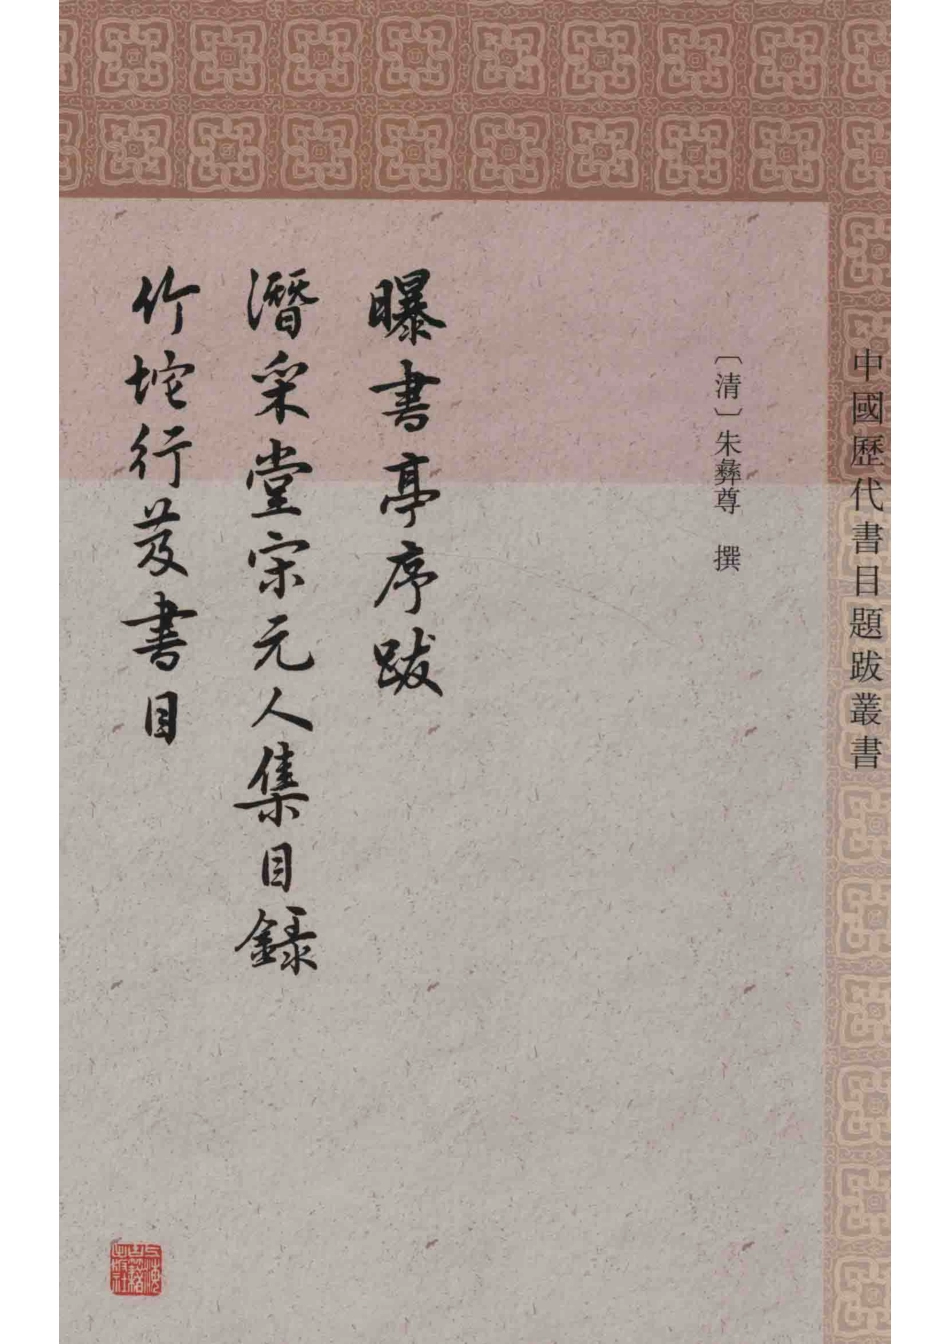 中國歷代書目題跋叢書
〔清〕朱彝尊 撰
曝書亭序跋
潛采堂宋元人集目錄
竹垞行笈書目
上海古籍出版社